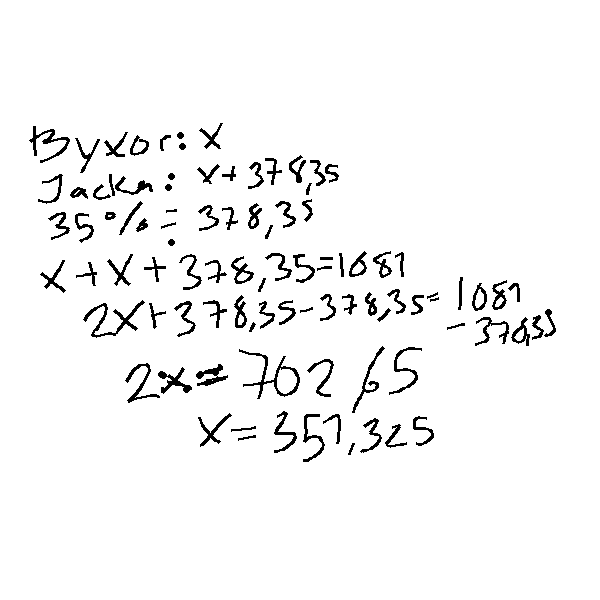 Byxor: x
Jacka: x+ 378,35
35%: 378,35
x+x+378,35=1081
2x+378,35-378,35= 1081
-378,35
2x=702,65
x=351,325